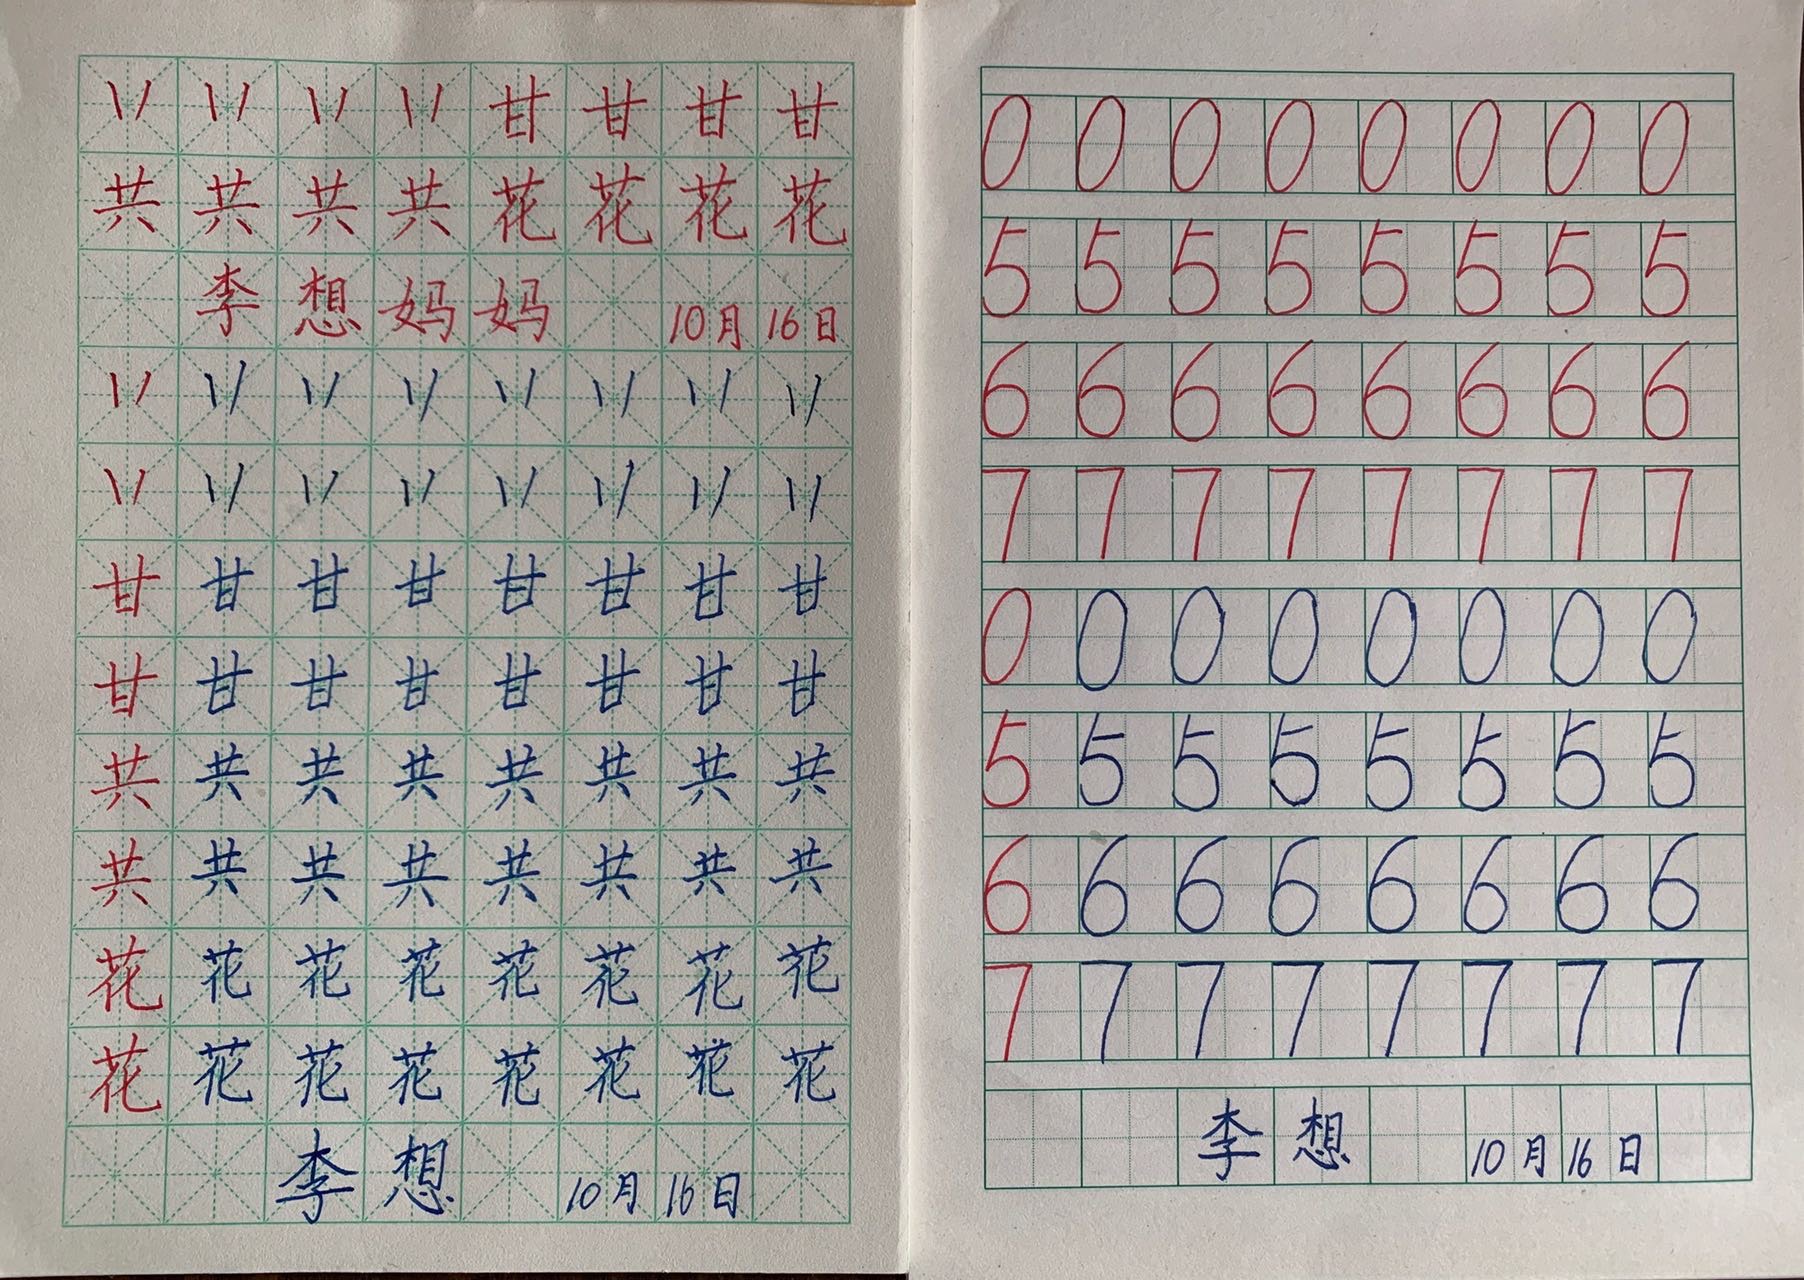 丷 丷 丷 丷 甘 甘 甘 甘
共 共 共 共 花 花 花 花
李 想 妈 妈 10月 16日
丷 丷 丷 丷 丷 丷 丷 丷
丷 丷 丷 丷 丷 丷 丷 丷
甘 甘 甘 甘 甘 甘 甘 甘
甘 甘 甘 甘 甘 甘 甘 甘
共 共 共 共 共 共 共 共
共 共 共 共 共 共 共 共
花 花 花 花 花 花 花 花
花 花 花 花 花 花 花 花
李 想 10月 16日
0 0 0 0 0 0 0 0
5 5 5 5 5 5 5 5
6 6 6 6 6 6 6 6
7 7 7 7 7 7 7 7
0 0 0 0 0 0 0 0
5 5 5 5 5 5 5 5
6 6 6 6 6 6 6 6
7 7 7 7 7 7 7 7
李 想 10月 16日